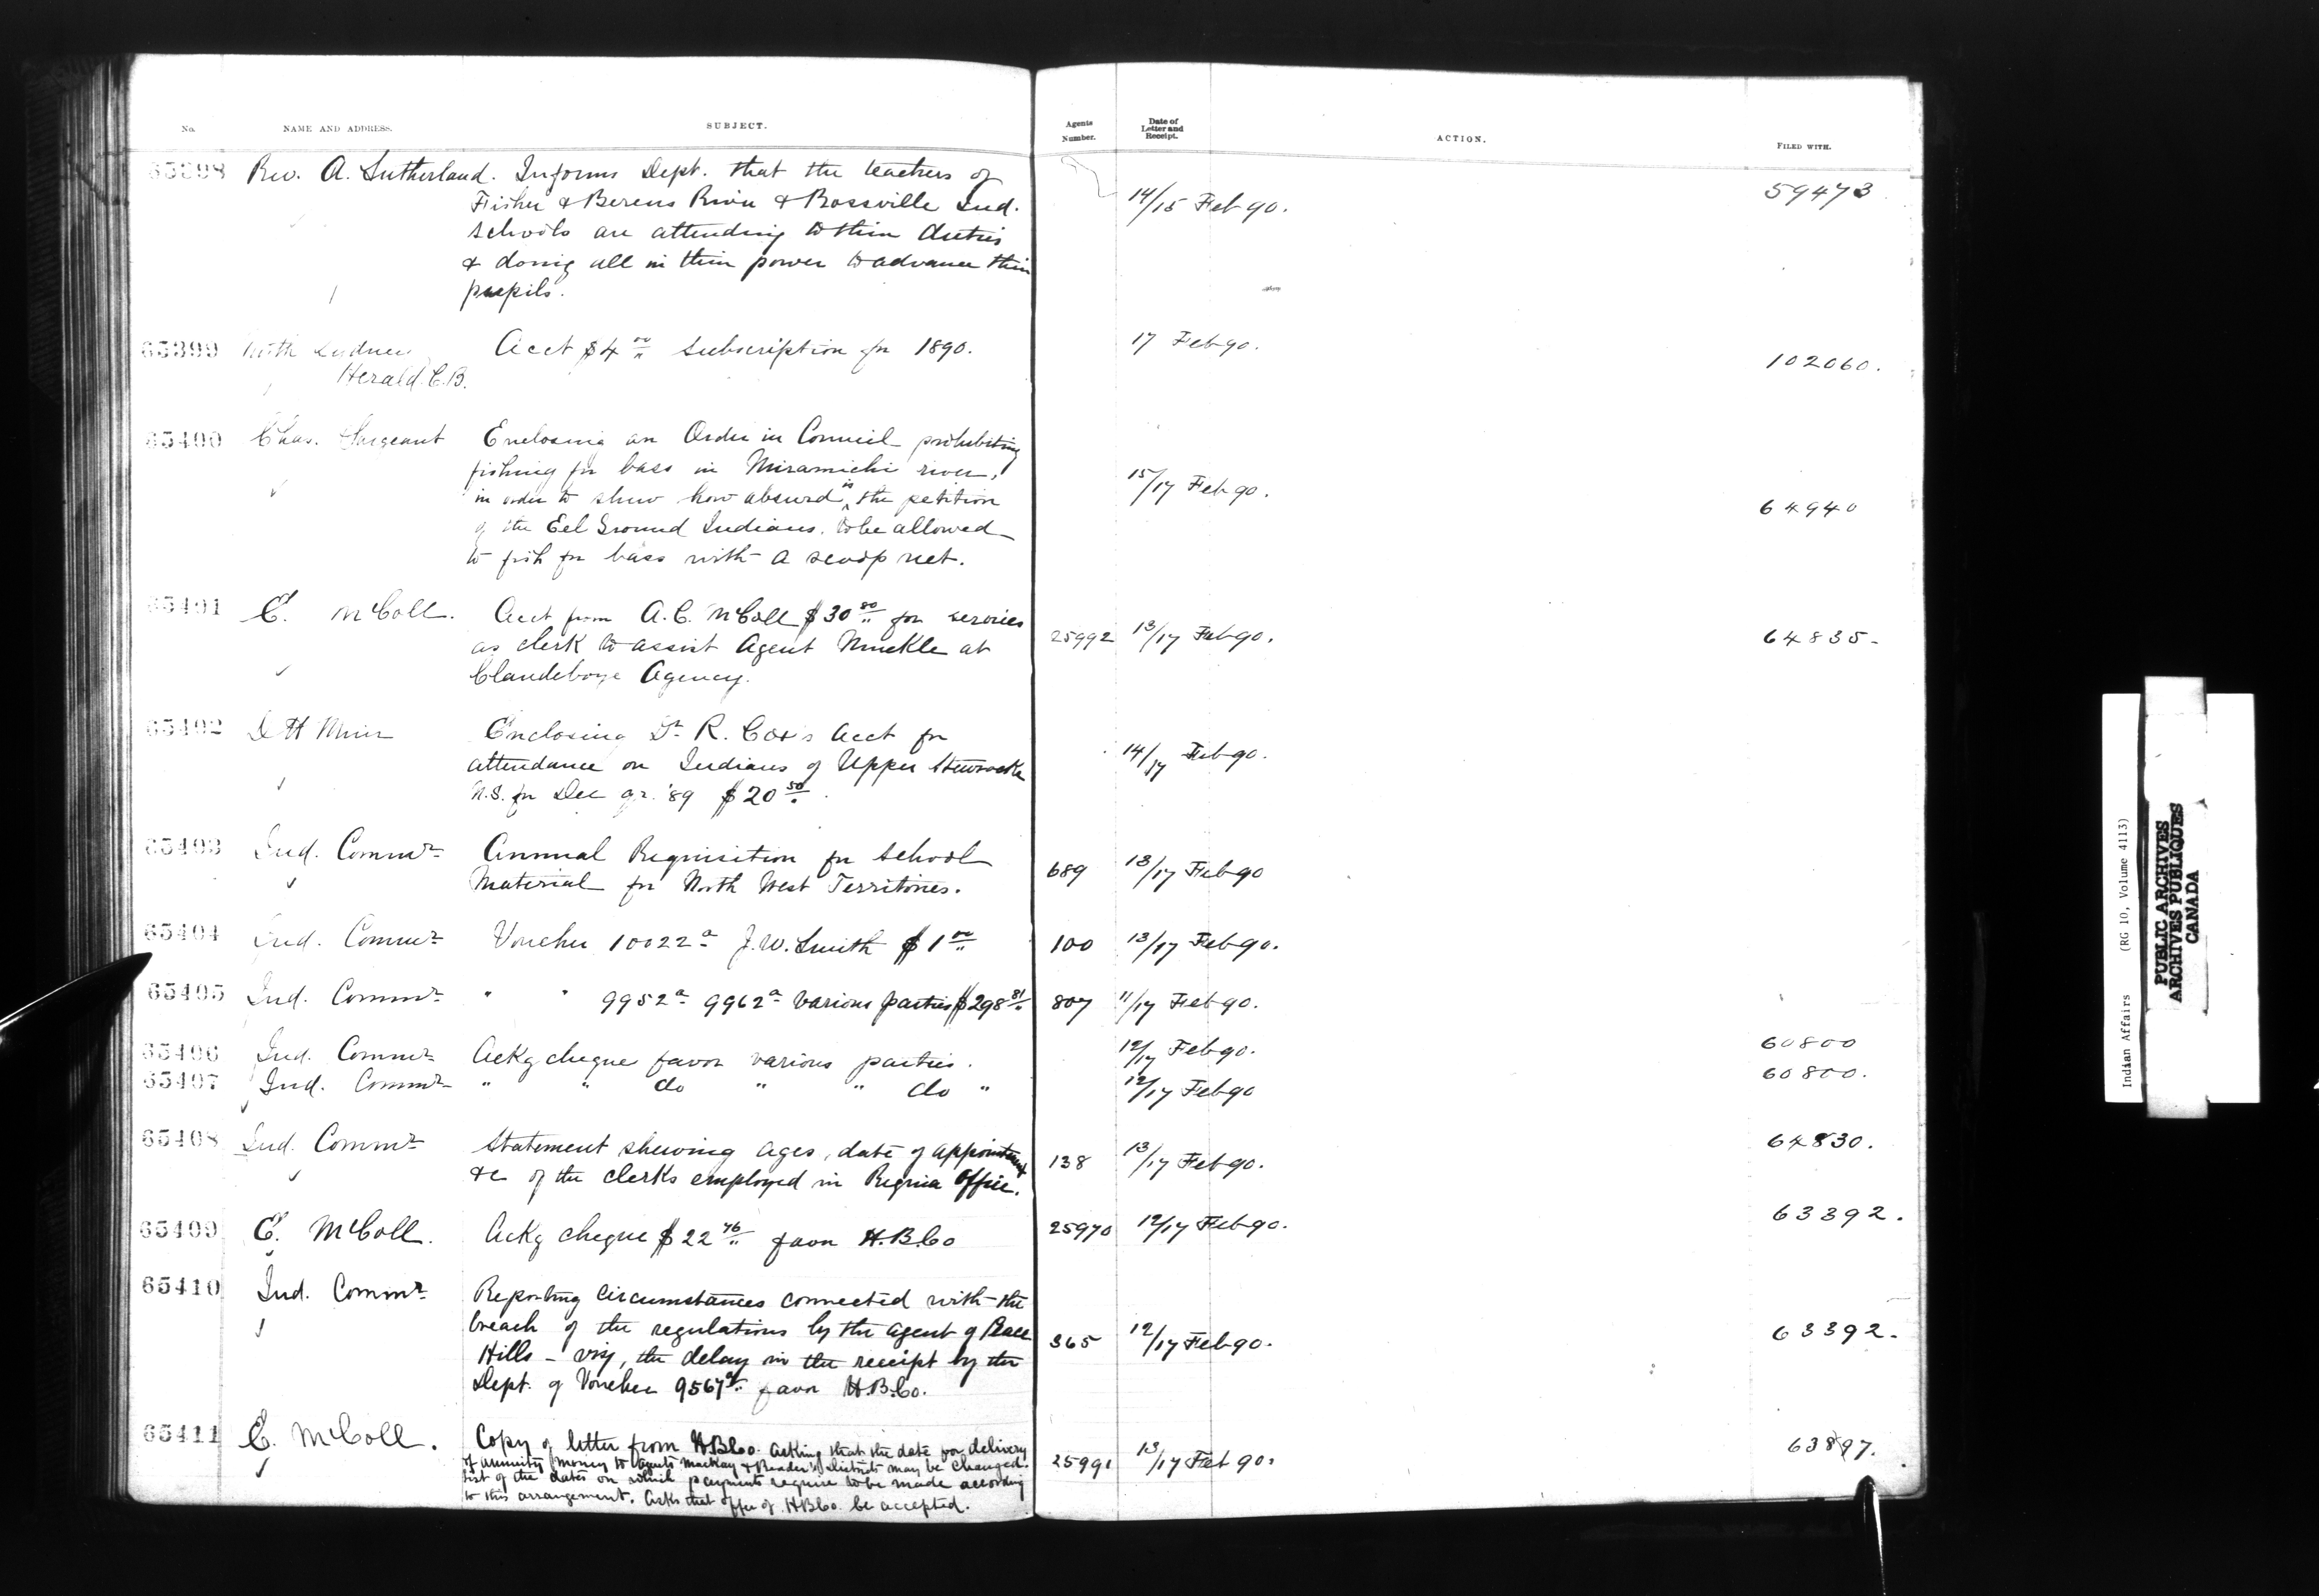 No. NAME AND ADDRESS. SUBJECT. Agents Number. Date of Letter and Receipt. ACTION. FILED WITH.
65398 Rev. A. Sutherland. Informs Dept. that the teachers of 14/15 Feb 90. 59473
Fisher & Berens River & Rossville Ind.
Schools are attending to their duties
& doing all in their power to advance their
pupils.
65399 North Sydney Acct $4 00 Subscription for 1890. 17 Feb 90. 102060.
Herald. C.B.
65400 Chas. Sargeant Enclosing an Order in Council prohibiting 15/17 Feb 90. 64940
fishing for bass in Miramichi river,
in order to shew how absurd is the petition
of the Eel Ground Indians. to be allowed
to fish for bass with a scoop net.
65401 E. McColl. Acct from A.C. McColl $30 80 for services 25992 13/17 Feb 90. 64835-
as clerk to assist Agent Muckle at
Clandeboye Agency.
65402 D H Muir Enclosing Dr R. Cox's Acct for 14/17 Feb 90.
attendance on Indians of Upper Stewiacke
N.S. for Dec qr. '89 $20 50.
65403 Ind. Commr Annual Requisition for School 689 13/17 Feb 90
Material for North West Territories.
65404 Ind. Commr Voucher 10022a J.W. Smith $1 00 100 13/17 Feb 90.
65405 Ind. Commr " " 9952a 9962a various parties $298 81 807 11/17 Feb 90.
65406 Ind. Commr Ackg cheque favor various parties. 12/17 Feb 90. 60800
65407 Ind. Commr " " do " " do " 12/17 Feb 90 60800.
65408 Ind. Commr Statement shewing ages, date of appointment 138 13/17 Feb 90. 64830.
&c of the clerks employed in Regina Office.
65409 E. McColl. Ackg cheque $22 76 favor H.B.Co 25970 12/17 Feb 90. 63392.
65410 Ind. Commr Reporting circumstances connected with the 365 12/17 Feb 90. 63392.
breach of the regulations by the Agent of Peace
Hills - viz, the delay in the receipt by the
Dept. of Voucher 9567a favor H.B.Co.
65411 E. McColl. Copy of letter from HBCo. asking that the date for delivery 25991 13/17 Feb 90. 63897.
of annuity money to Agents Mackay & Reader's Districts may be changed.
list of the dates on which payments require to be made according
to this arrangement. Asks that offer of HBCo. be accepted.
Indian Affairs (RG 10, Volume 4113)
PUBLIC ARCHIVES
ARCHIVES PUBLIQUES
CANADA